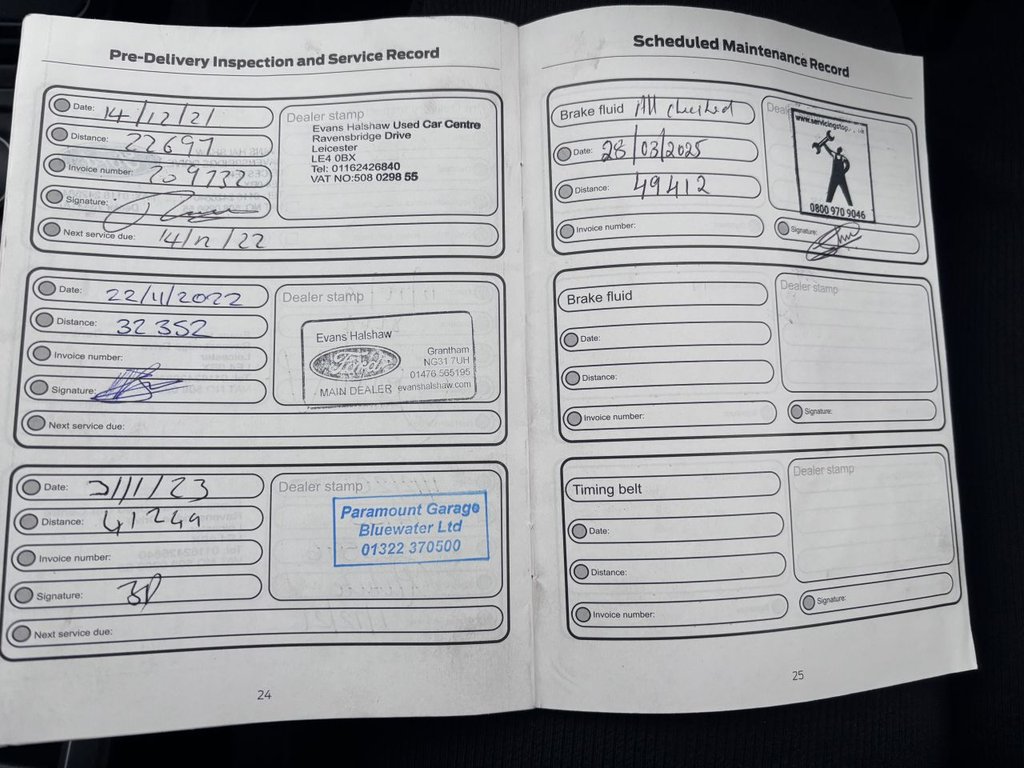 Pre-Delivery Inspection and Service Record
Date: 14/12/21
Distance: 22697
Invoice number: 209732
Signature:
Next service due: 14/12/22
Dealer stamp
Evans Halshaw Used Car Centre
Ravensbridge Drive
Leicester
LE4 0BX
Tel: 01162426840
VAT NO:508 0298 55
Date: 22/11/2022
Distance: 32352
Invoice number:
Signature:
Next service due:
Dealer stamp
Evans Halshaw
Ford
Grantham
NG31 7UH
01476 565195
MAIN DEALER evanshalshaw.com
Date: /11/23
Distance: 41249
Invoice number:
Signature:
Next service due:
Dealer stamp
Paramount Garage
Bluewater Ltd
01322 370500
24
Scheduled Maintenance Record
Brake fluid All checked
Date: 28/03/2025
Distance: 49412
Invoice number:
www.servicingstop
0800 970 9046
Signature:
Brake fluid
Date:
Distance:
Invoice number:
Dealer stamp
Signature:
Timing belt
Date:
Distance:
Invoice number:
Dealer stamp
Signature:
25